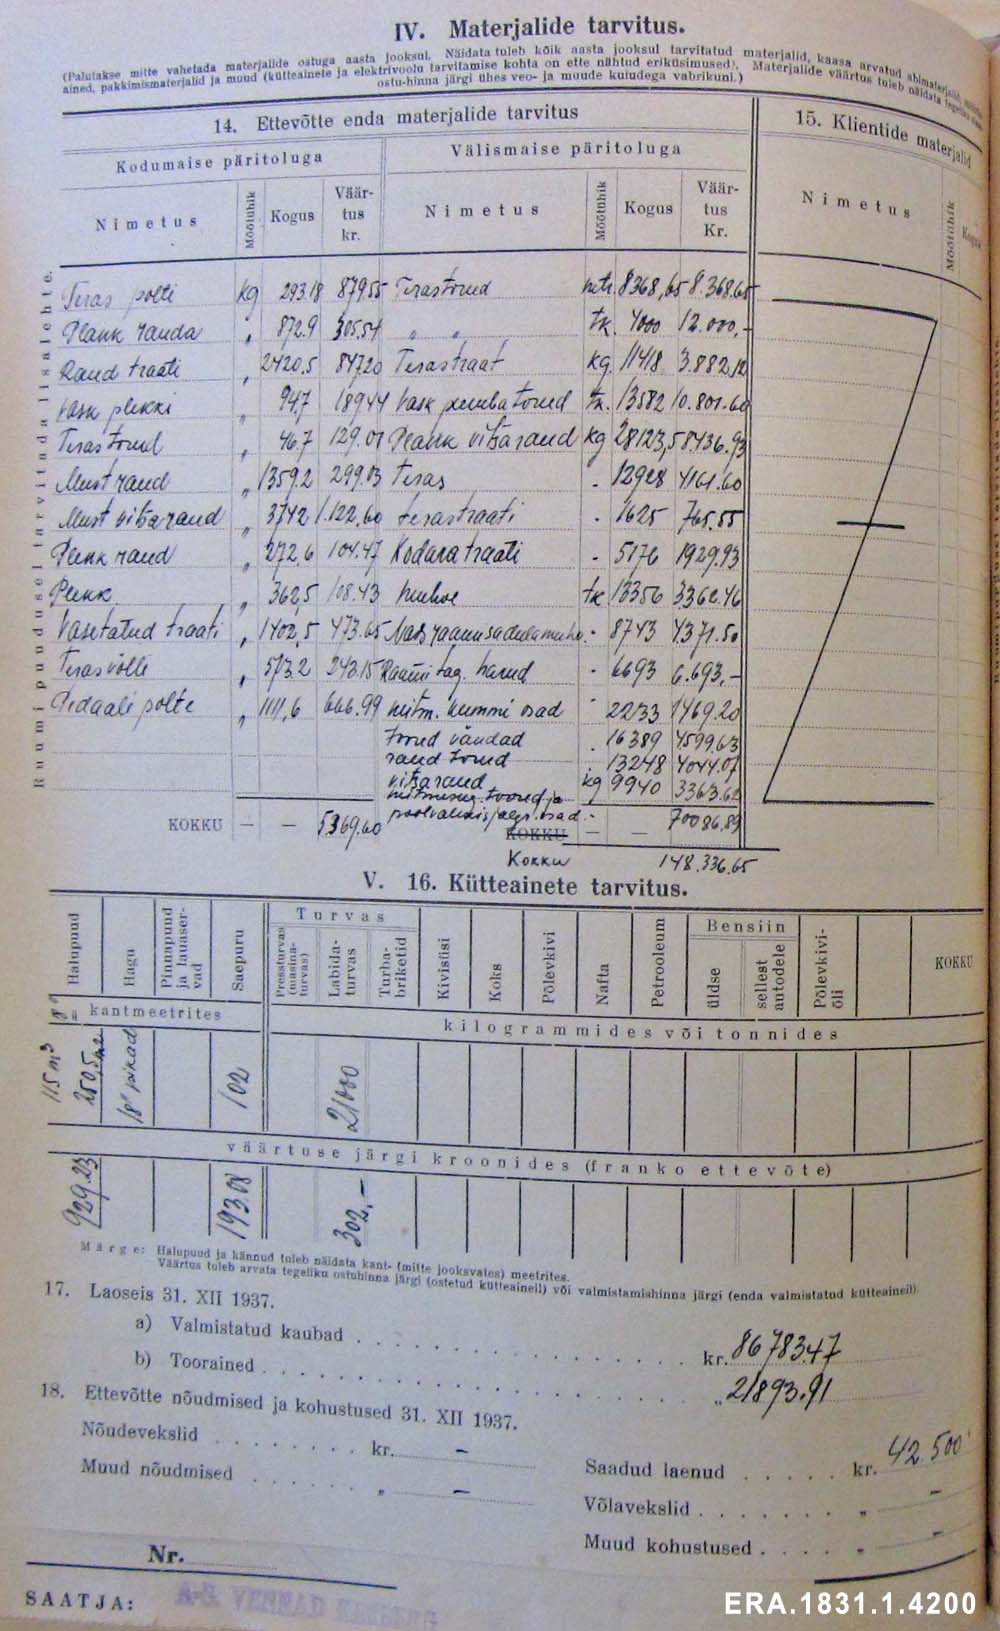 IV. Materjalide tarvitus.
(Palutakse mitte vahetada materjalide ostuga aasta jooksul. Näidata tuleb kõik aasta jooksul tarvitatud materjalid, kaasa arvatud abimaterjalid,
ained, pakkimismaterjalid ja muud (kütteainete ja elektrivoolu tarvitamise kohta on ette nähtud eriküsimused). Materjalide väärtus tuleb näidata tegeliku
ostu-hinna järgi ühes veo- ja muude kuludega vabrikuni.)
14. Ettevõtte enda materjalide tarvitus
15. Klientide materjalid
Kodumaise päritoluga
Välismaise päritoluga
Nimetus Mõõtühik Kogus Väärtus kr. Nimetus Mõõtühik Kogus Väärtus Kr. Nimetus Mõõtühik Kogus
Ruumi puudusel tarvitada lisalehte.
Teras polti kg 293.18 879.55 Terastorud mtr. 8368,65 8.368.65
Plank rauda " 872.9 305.54 " " tk. 4000 12.000,-
Raud traati " 2420,5 847.20 Terastraat kg. 11418 3.882,12
Vask plekki " 94,7 189.44 Vask pumba torud tk. 13582 10.801.60
Terastorud " 46.7 129.01 Plank vitsaraud kg 28123,5 8436.93
Must raud " 1359.2 299.03 Teras " 12928 4161.60
Must vitsaraud " 3742 1.122,60 terastraati " 1625 765.55
Plekk raud " 272,6 104.47 Kodara traati " 5176 1929.93
Plekk " 362,5 108.43 muhve tk 13356 3362.46
Vasetatud traati " 1402,5 473.65 " 8743 4371.50
Teras võlli " 573.2 243.15 Raami tag. harud " 6693 6.693.-
Pedaali polte " 1111,6 666.99 mitm. kummi osad " 2233 1469.20
torud vändad " 16389 4599.63
raud torud " 13248 4044.07
vitsaraud kg 9940 3363.62
mitmesug. toored ja
poolvalmis jalgr. osad - 70086,89
KOKKU — — 5369.60 KOKKU — —
Kokku 148.336.65
V. 16. Kütteainete tarvitus.
Halupuud Hagu Pinnapuud ja lauaservad Saepuru Turvas Pressturvas (masinaturvas) Labidaturvas Turbabriketid Kivisüsi Koks Põlevkivi Nafta Petrooleum Bensiin üldse sellest autodele Põlevkiviõli KOKKU
kantmeetrites
kilogrammides või tonnides
115 m³ 250,5 m² 18" pikad 102 21000
väärtuse järgi kroonides (franko ettevõte)
929.23 193.08 302,-
Märge: Halupuud ja kännud tuleb näidata kant- (mitte jooksvates) meetrites.
Väärtus tuleb arvata tegeliku ostuhinna järgi (ostetud kütteaineil) või valmistamishinna järgi (enda valmistatud kütteaineil).
17. Laoseis 31. XII 1937.
a) Valmistatud kaubad . . . . . kr. 86783.47
b) Toorained . . . . . " 21893.91
18. Ettevõtte nõudmised ja kohustused 31. XII 1937.
Nõudevekslid . . . . . kr. —
Muud nõudmised . . . . . " —
Saadud laenud . . . . . kr. 42.500
Võlavekslid . . . . . " —
Muud kohustused . . . . " —
Nr.
SAATJA: A-S. VENNAD
ERA.1831.1.4200